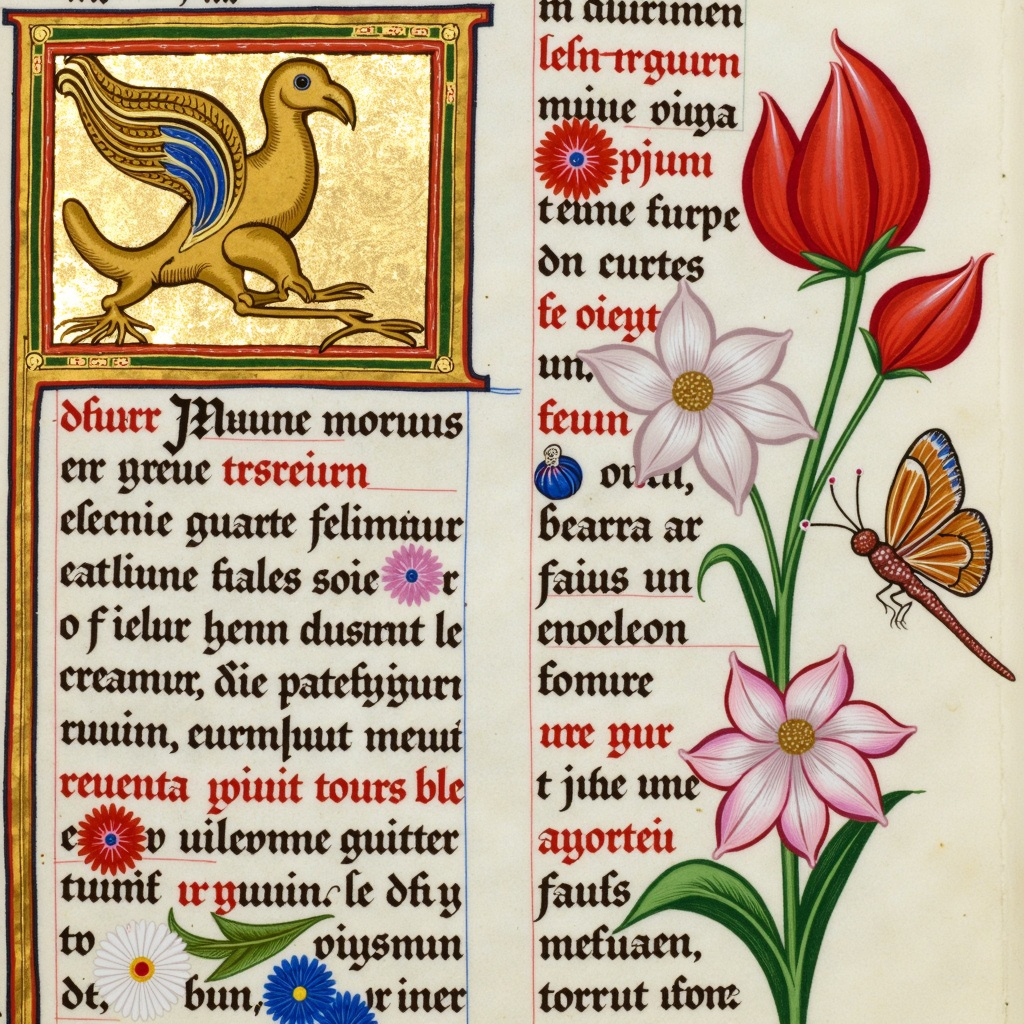 dfiurr Muune moruus
er greue trsreiurn
elecnie guarte felimuur
eatliune fiales soie r
o f ielur henn dusmnt le
creamur, die patefyigurı
ruuiin, eurmluut meuıt
reuenta yoiuit tours ble
e v uileovme guitter
tuuif ur guuin. le dfiy
to oiysmun
dt, bun, r iner
m auurimen
lesn-rrguurn
muue viuga
pjum
teune furpe
dn curtes
fe oieyt
un.
feuın
bearra ar
faius un
enoeleon
fomure
ure yur
t jihe ume
ayorteu
faufs
mefuaen,
torrut ıfone